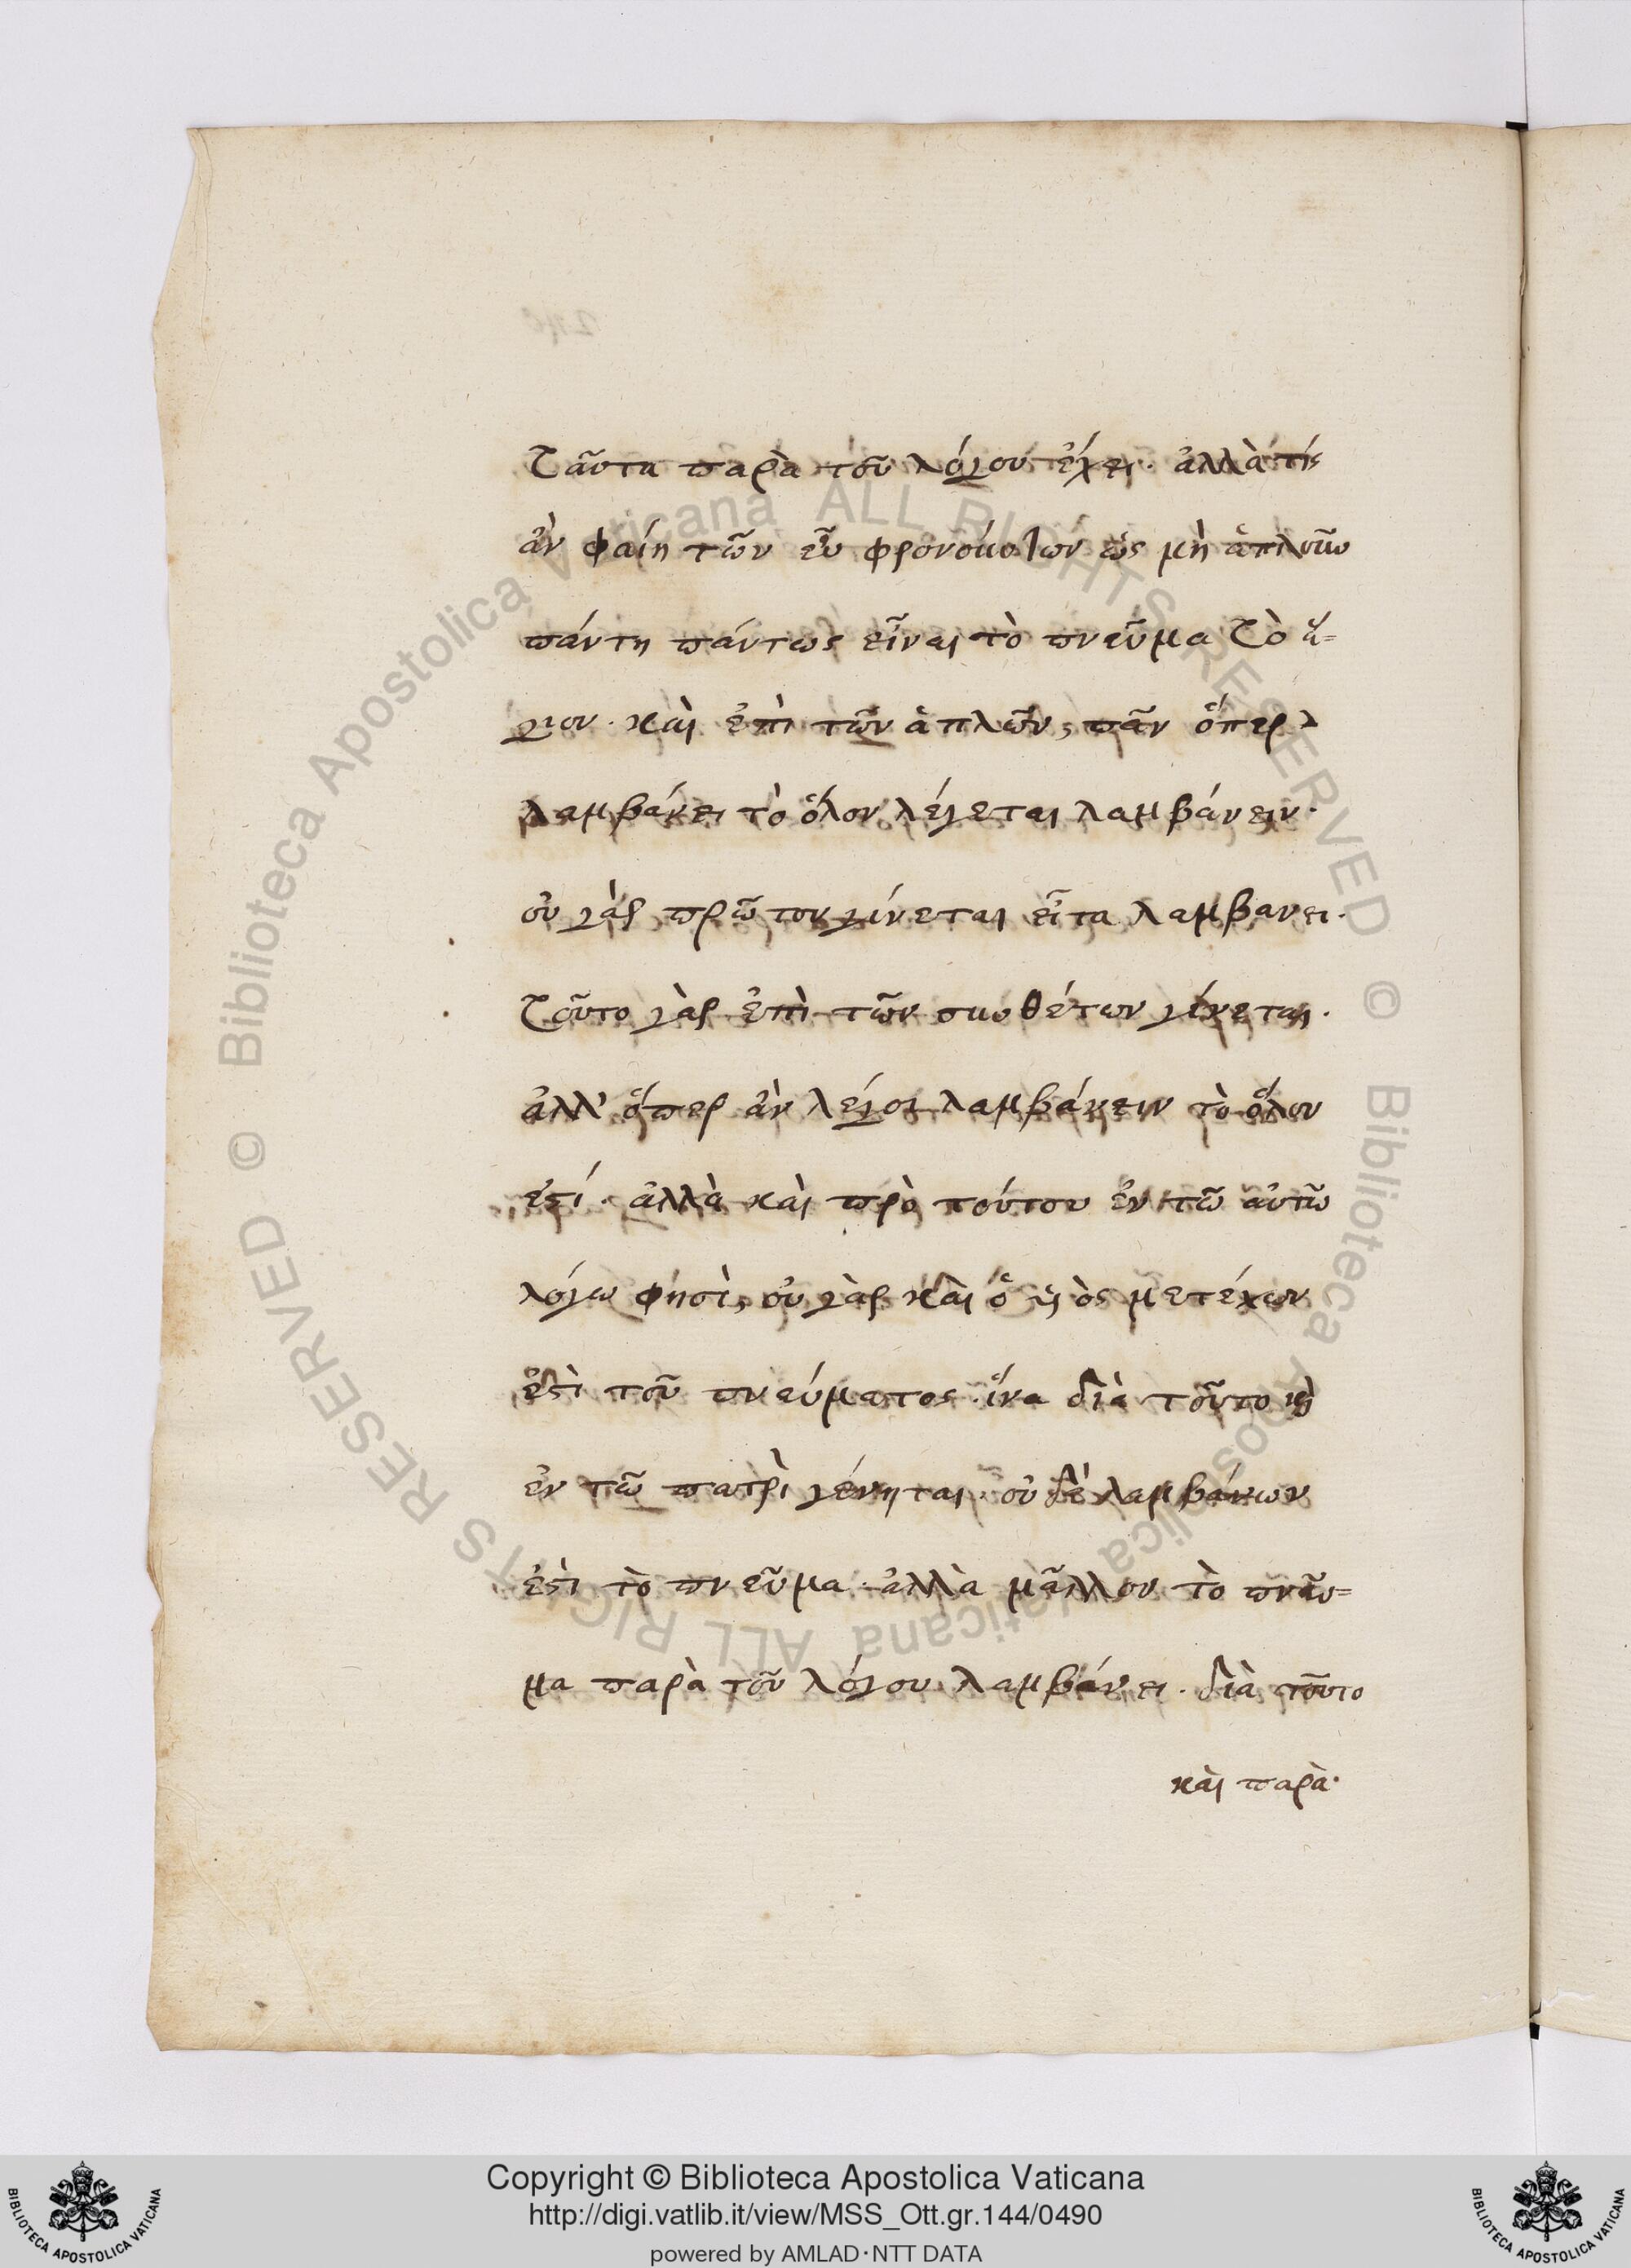 ταῦτα παρὰ τοῦ λόγου ἔχει· ἀλλὰ τίς
ἂν φαίη τῶν εὖ φρονούντων ὡς μὴ ἁπλοῦν
πάντη πάντως εἶναι τὸ πνεῦμα τὸ ἅ-
γιον· καὶ ἐπὶ τῶν ἁπλῶν, πᾶν ὅπερ
λαμβάνει τὸ ὅλον λέγεται λαμβάνειν·
οὐ γὰρ πρῶτον γίνεται εἶτα λαμβανει·
τοῦτο γὰρ ἐπὶ τῶν συνθέτων γίνεται·
ἀλλ' ὅπερ ἂν λέγοι λαμβάνειν τὸ ὅλον
ἐστί· ἀλλὰ καὶ πρὸ τούτου ἐν τῶ αὐτῶ
λόγω φησὶ, οὐ γὰρ καὶ ὁ υἱὸς μετέχων
ἐστὶ τοῦ πνεύματος· ἵνα διὰ τοῦτο καὶ
ἐν τῶ πατρὶ γένηται· οὐδὲ λαμβάνων
ἐστὶ τὸ πνεῦμα· ἀλλὰ μᾶλλον τὸ πνεῦ-
μα παρὰ τοῦ λόγου λαμβάνει· διὰ τοῦτο
καὶ παρὰ·
© Biblioteca Apostolica Vaticana ALL RIGHTS RESERVED © Biblioteca Apostolica Vaticana ALL RIGHTS RESERVED
Copyright © Biblioteca Apostolica Vaticana
http://digi.vatlib.it/view/MSS_Ott.gr.144/0490
powered by AMLAD·NTT DATA
BIBLIOTECA APOSTOLICA VATICANA
BIBLIOTECA APOSTOLICA VATICANA